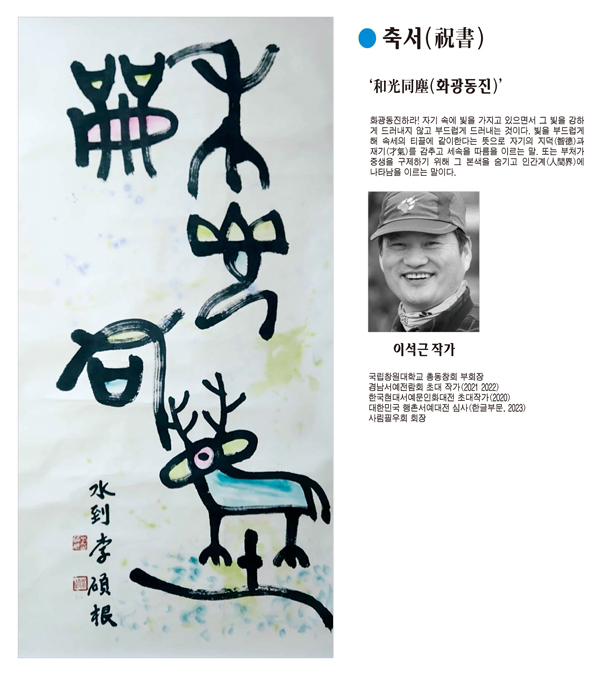 축서(祝書)
‘和光同塵(화광동진)’
화광동진하라! 자기 속에 빛을 가지고 있으면서 그 빛을 강하
게 드러내지 않고 부드럽게 드러내는 것이다. 빛을 부드럽게
해 속세의 티끌에 같이한다는 뜻으로 자기의 지덕(智德)과
재기(才氣)를 감추고 세속을 따름을 이르는 말. 또는 부처가
중생을 구제하기 위해 그 본색을 숨기고 인간계(人間界)에
나타남을 이르는 말이다.
이석근 작가
국립창원대학교 총동창회 부회장
경남서예전람회 초대 작가(2021 2022)
한국현대서예문인화대전 초대작가(2020)
대한민국 행촌서예대전 심사(한글부문, 2023)
사림필우회 회장
和光
同塵
水到 李碩根